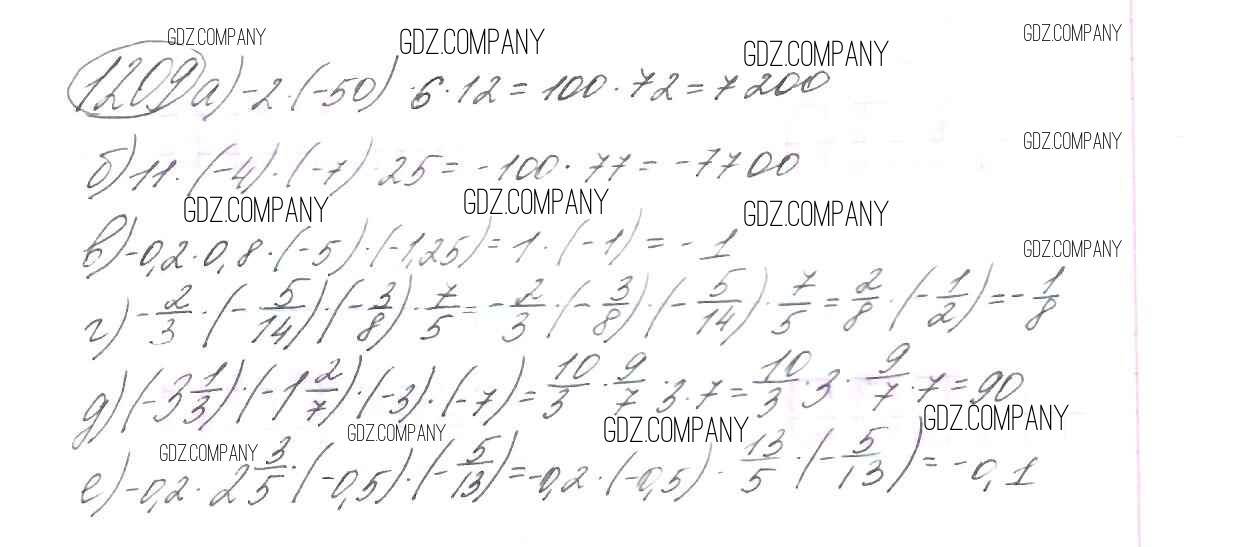 GDZ.COMPANY GDZ.COMPANY GDZ.COMPANY GDZ.COMPANY
1209 а) -2 · (-50) · 6 · 12 = 100 · 72 = 7200
GDZ.COMPANY
б) 11 · (-4) · (-7) 25 = -100 · 77 = -7700
GDZ.COMPANY GDZ.COMPANY GDZ.COMPANY
в) -0,2 · 0,8 · (-5) · (-1,25) = 1 · (-1) = -1
GDZ.COMPANY
г) -2/3 · (-5/14) · (-3/8) · 7/5 = -2/3 · (-3/8) · (-5/14) · 7/5 = 2/8 · (-1/2) = -1/8
д) (-3 1/3) · (-1 2/7) · (-3) · (-7) = 10/3 · 9/7 · 3 · 7 = 10/3 · 3 · 9/7 · 7 = 90
GDZ.COMPANY GDZ.COMPANY GDZ.COMPANY GDZ.COMPANY
е) -0,2 · 2 3/5 · (-0,5) · (-5/13) = -0,2 · (-0,5) · 13/5 · (-5/13) = -0,1